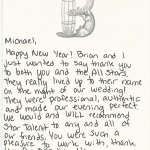 B
Michael,
Happy New Year! Brian and I
just wanted to say thank you
to both you and the All Stars.
They really lived up to their name
on the night of our wedding!
They were professional, authentic
and made our evening perfect.
We would and WILL recommend
Star Talent to any and all of
our friends. You were such a
pleasure to work with, thank